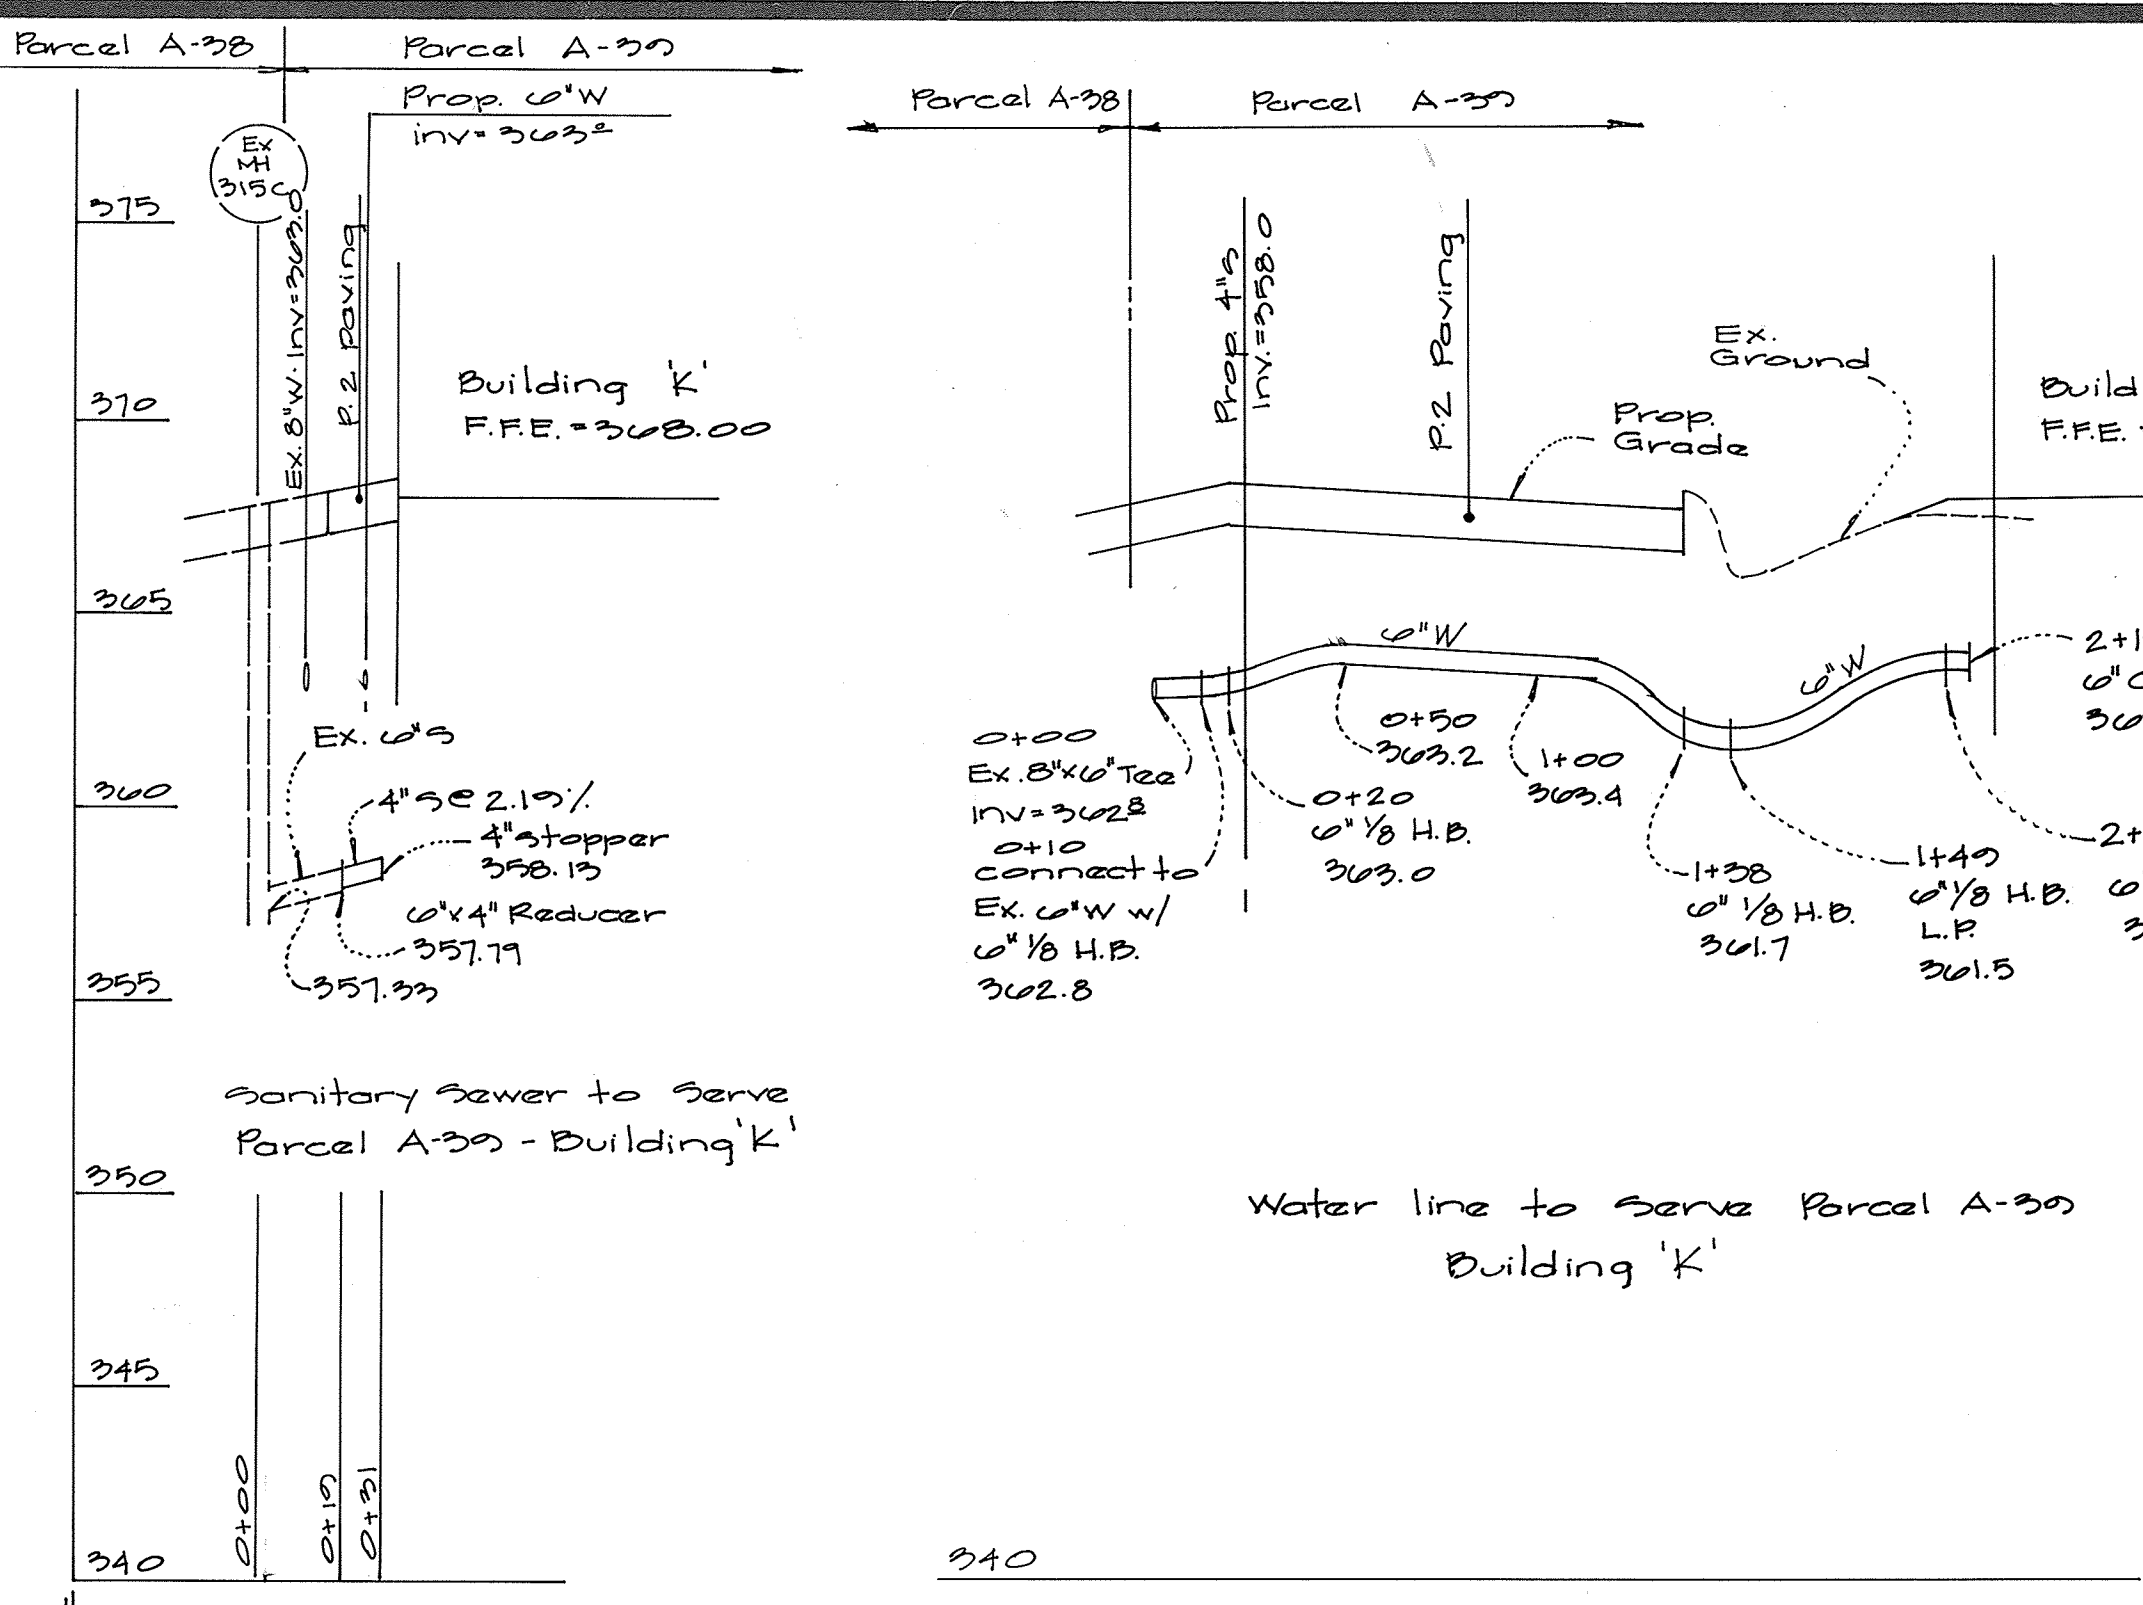 Parcel A-38
Parcel A-39
Prop. 6"W
inv=363⁰
Ex
MH
315C
Ex. 8"W. Inv=363.0
P.2 Paving
Building 'K'
F.F.E. = 368.00
375
370
365
360
355
350
345
340
Ex. 6"S
4"S@ 2.19%
4"Stopper
358.13
6"x4" Reducer
357.79
357.33
Sanitary Sewer to Serve
Parcel A-39 - Building 'K'
0+00
0+19
0+31
Parcel A-38
Parcel A-39
Prop. 4"S
Inv.=358.0
P.2 Paving
Ex.
Ground
Prop.
Grade
Build
F.F.E.
6"W
6"W
0+00
Ex. 8"x6" Tee
Inv=362⁸
0+10
connect to
Ex. 6"W w/
6" 1/8 H.B.
362.8
0+20
6" 1/8 H.B.
363.0
0+50
363.2
1+00
363.4
1+38
6" 1/8 H.B.
361.7
1+49
6" 1/8 H.B.
L.P.
361.5
2+1
6" C
36
2+
6
3
Water line to Serve Parcel A-39
Building 'K'
340